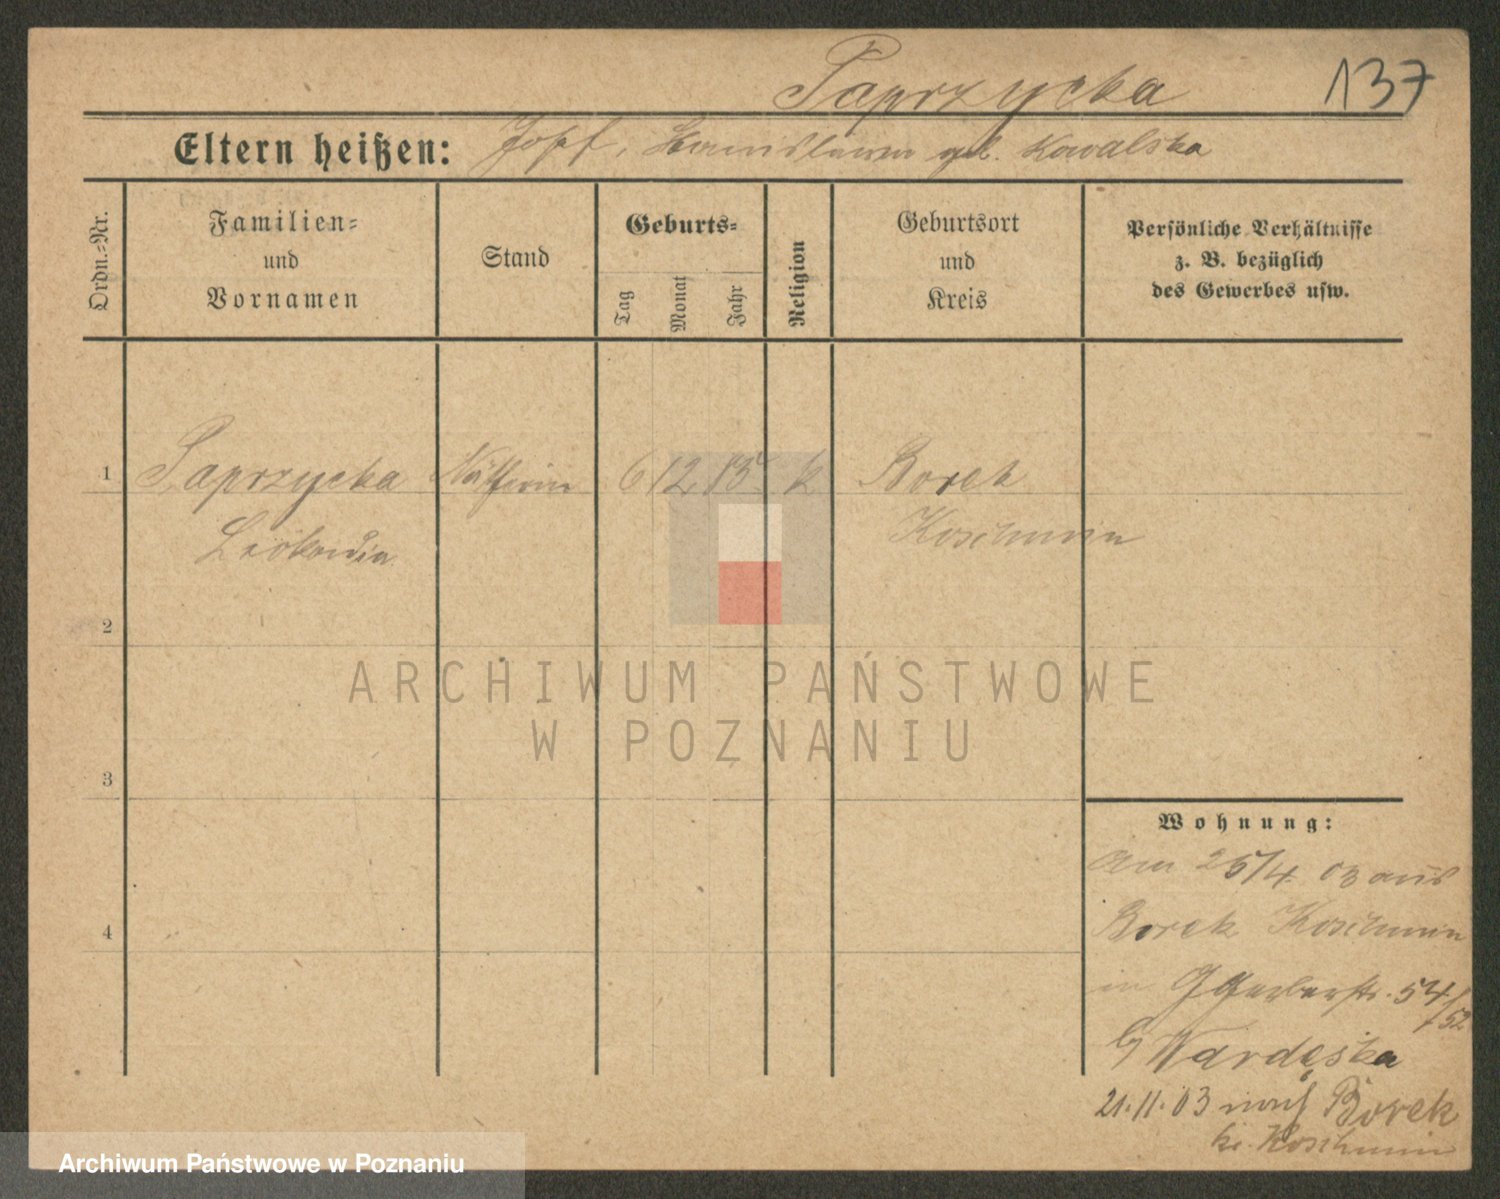 Paprzycka 137
Eltern heißen: Josef, Stanislawa geb. Kowalska
Ordn.-Nr.
Familien-
und
Vornamen
Stand
Geburts-
Tag
Monat
Jahr
Religion
Geburtsort
und
Kreis
Persönliche Verhältnisse
z. B. bezüglich
des Gewerbes usw.
1 Paprzycka Näherin 6 12 k Borek
Leokadia Koschmin
2
3
4
ARCHIWUM PAŃSTWOWE
W POZNANIU
Wohnung:
Am 25/4. 03 aus
Borek Koschmin
in Gerberstr. 54/52
by Wardęska
21.11.03 nach Borek
kr. Koschmin
Archiwum Państwowe w Poznaniu